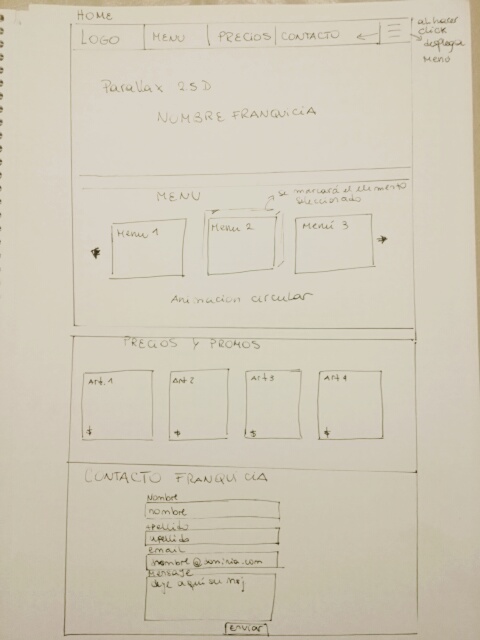 HOME
LOGO MENU PRECIOS CONTACTO
al hacer
click
despliega
Menú
Parallax 2.5D
NOMBRE FRANQUICIA
MENU
se marcará el elemento
seleccionado
Menu 1 Menu 2 Menú 3
Animacion circular
PRECIOS Y PROMOS
Art. 1 Art 2 Art 3 Art 4
$ $ $ $
CONTACTO FRANQUICIA
Nombre
nombre
Apellido
apellido
email
Mensaje
deje aqui su
enviar